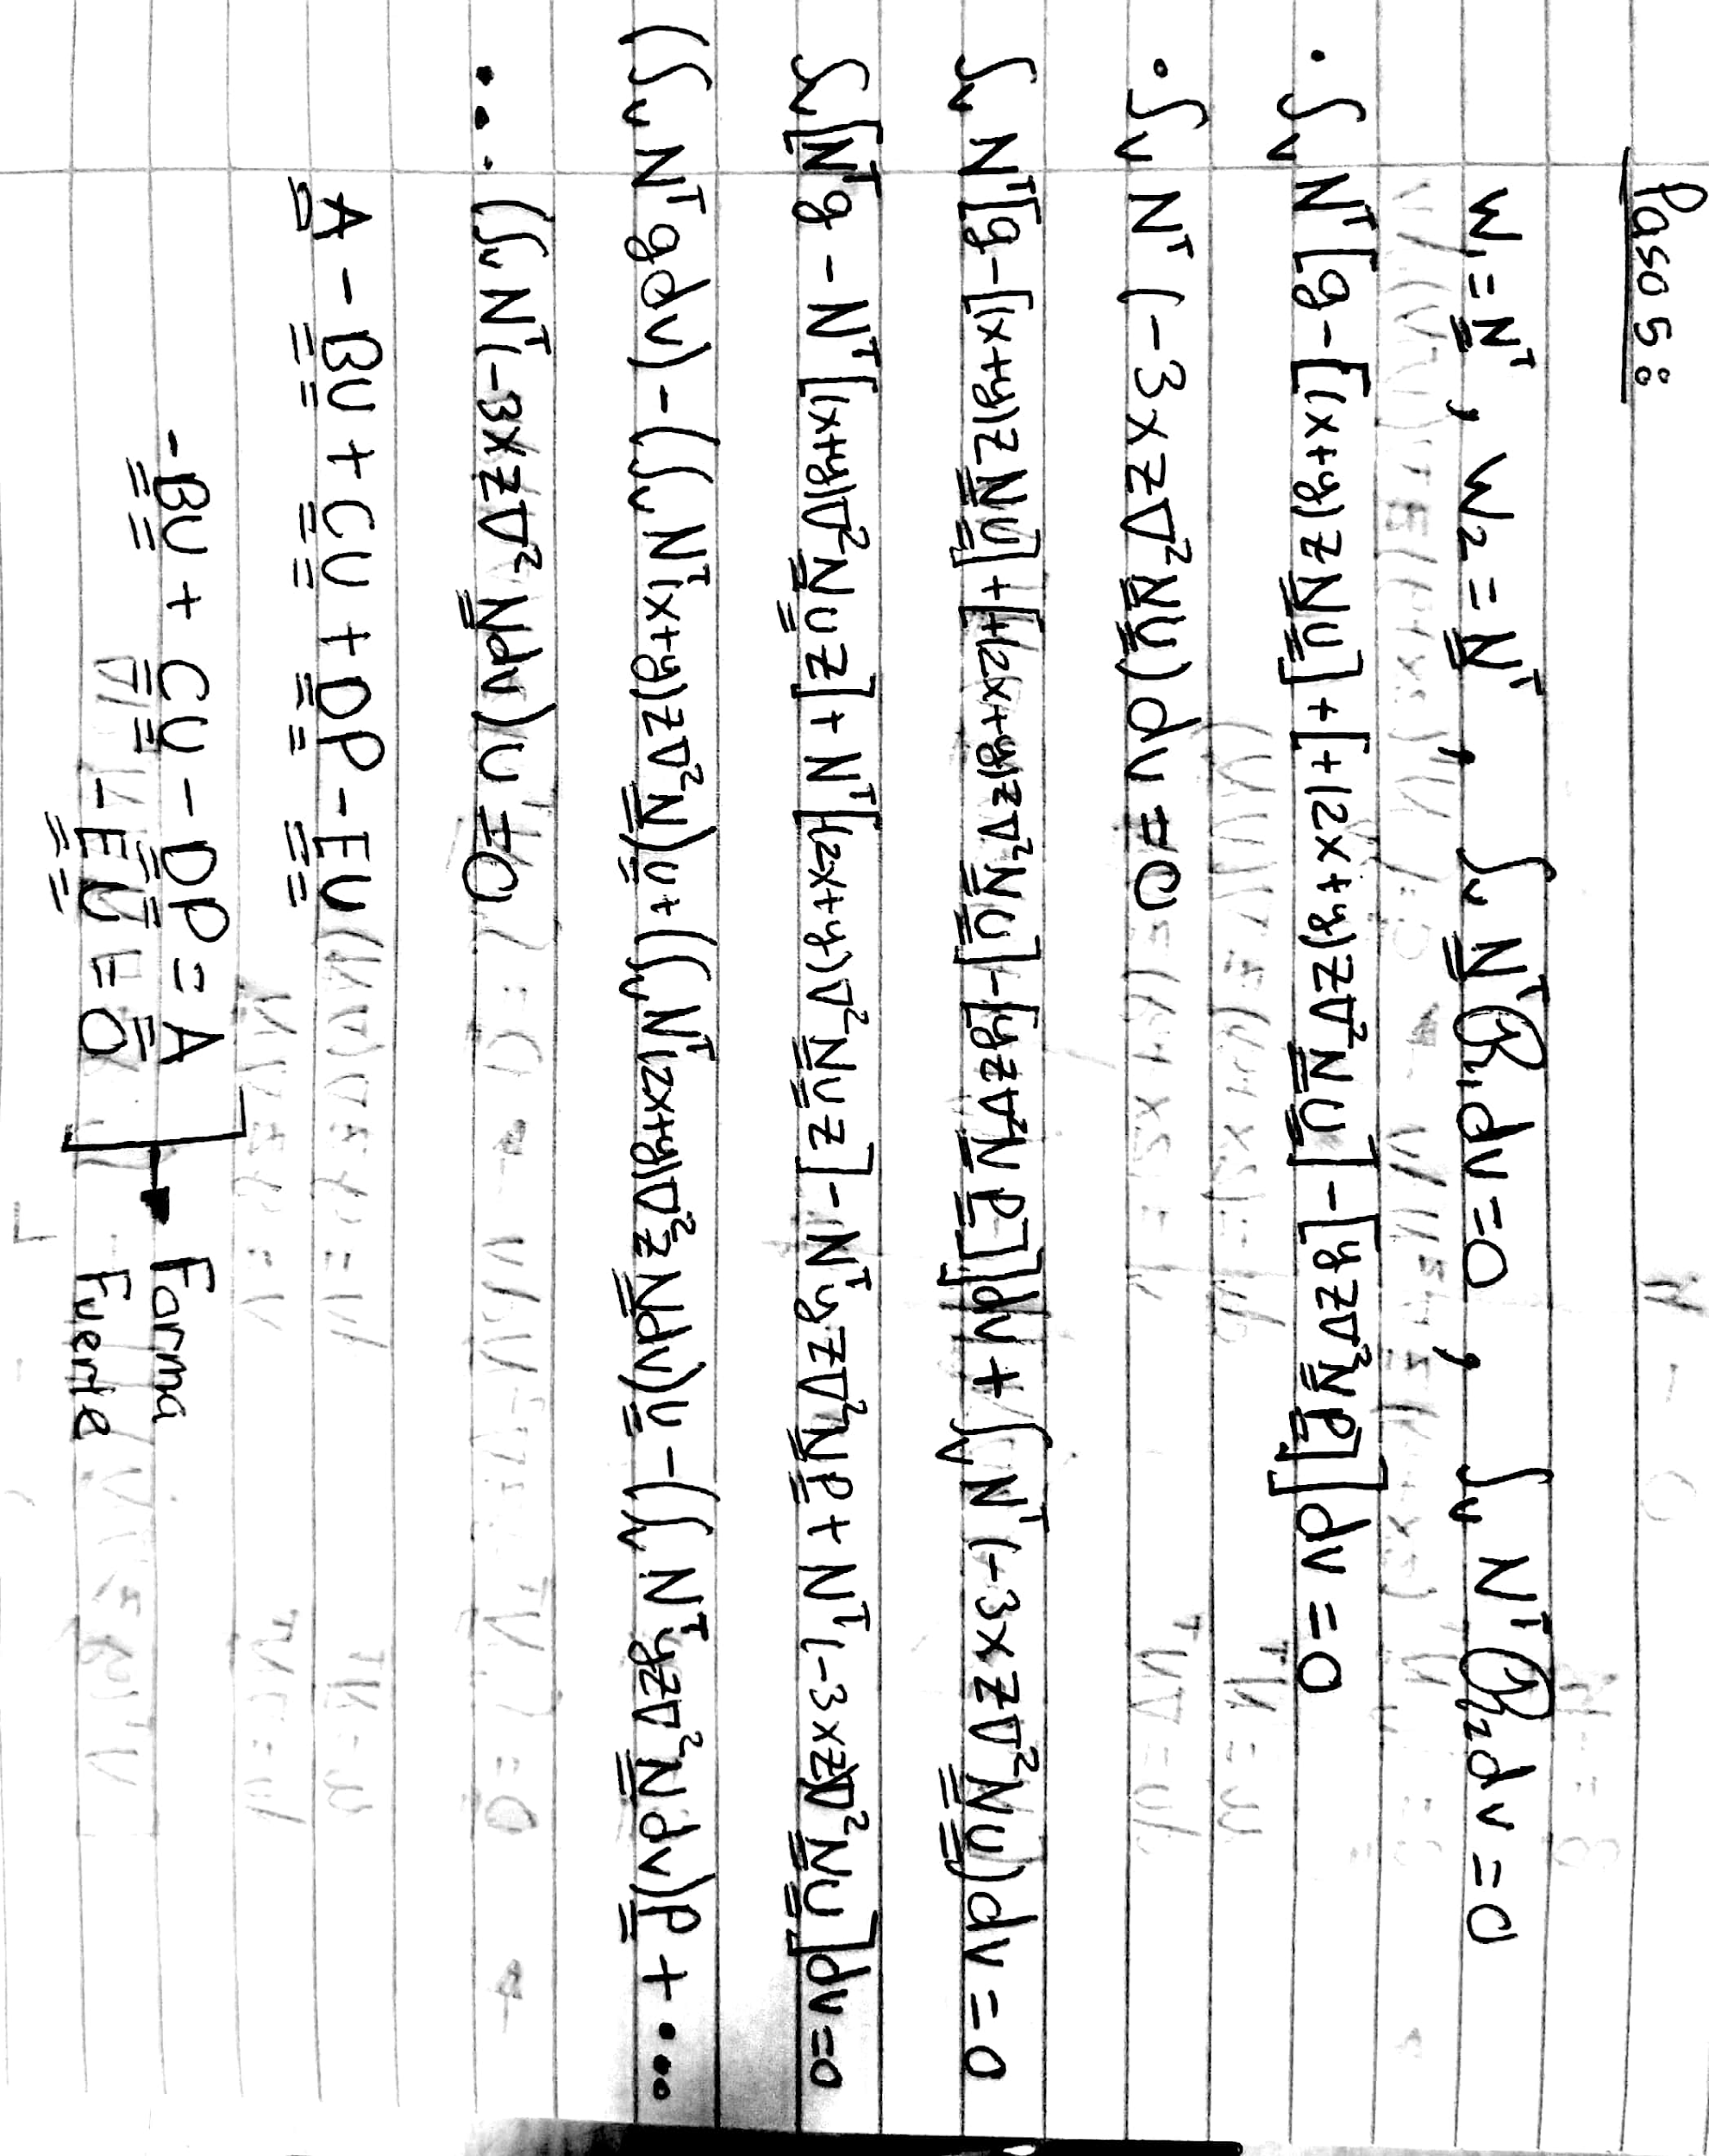 Paso 5:
W₁ = N^T , W₂ = N^T , ∫v N^T R₁ dv = 0 , ∫v N^T R₂ dv = 0
· ∫v N^T [g - [(x+y)z N U] + [+(2x+y)z∇² N U] - [yz∇² N P]] dv = 0
· ∫v N^T (-3xz∇² N U) dv = 0
∫v N^T [g - [(x+y)z N U] + [+(2x+y)z∇² N U] - [yz∇² N P]] dv + ∫v N^T (-3xz∇² N U) dv = 0
∫v [N^T g - N^T [(x+y)∇² N U z] + N^T [(2x+y)∇² N U z] - N^T yz∇² N P + N^T (-3xz)∇² N U] dv = 0
(∫v N^T g dv) - (∫v N^T (x+y)z∇² N) U + (∫v N^T (2x+y)∇² z N dv) U - (∫v N^T yz∇² N dv) P + ...
... (∫v N^T (-3xz∇² N dv) U = 0
A - BU + CU + DP - EU
-BU + CU - DP = A
-EU = 0
Forma
Fuerte